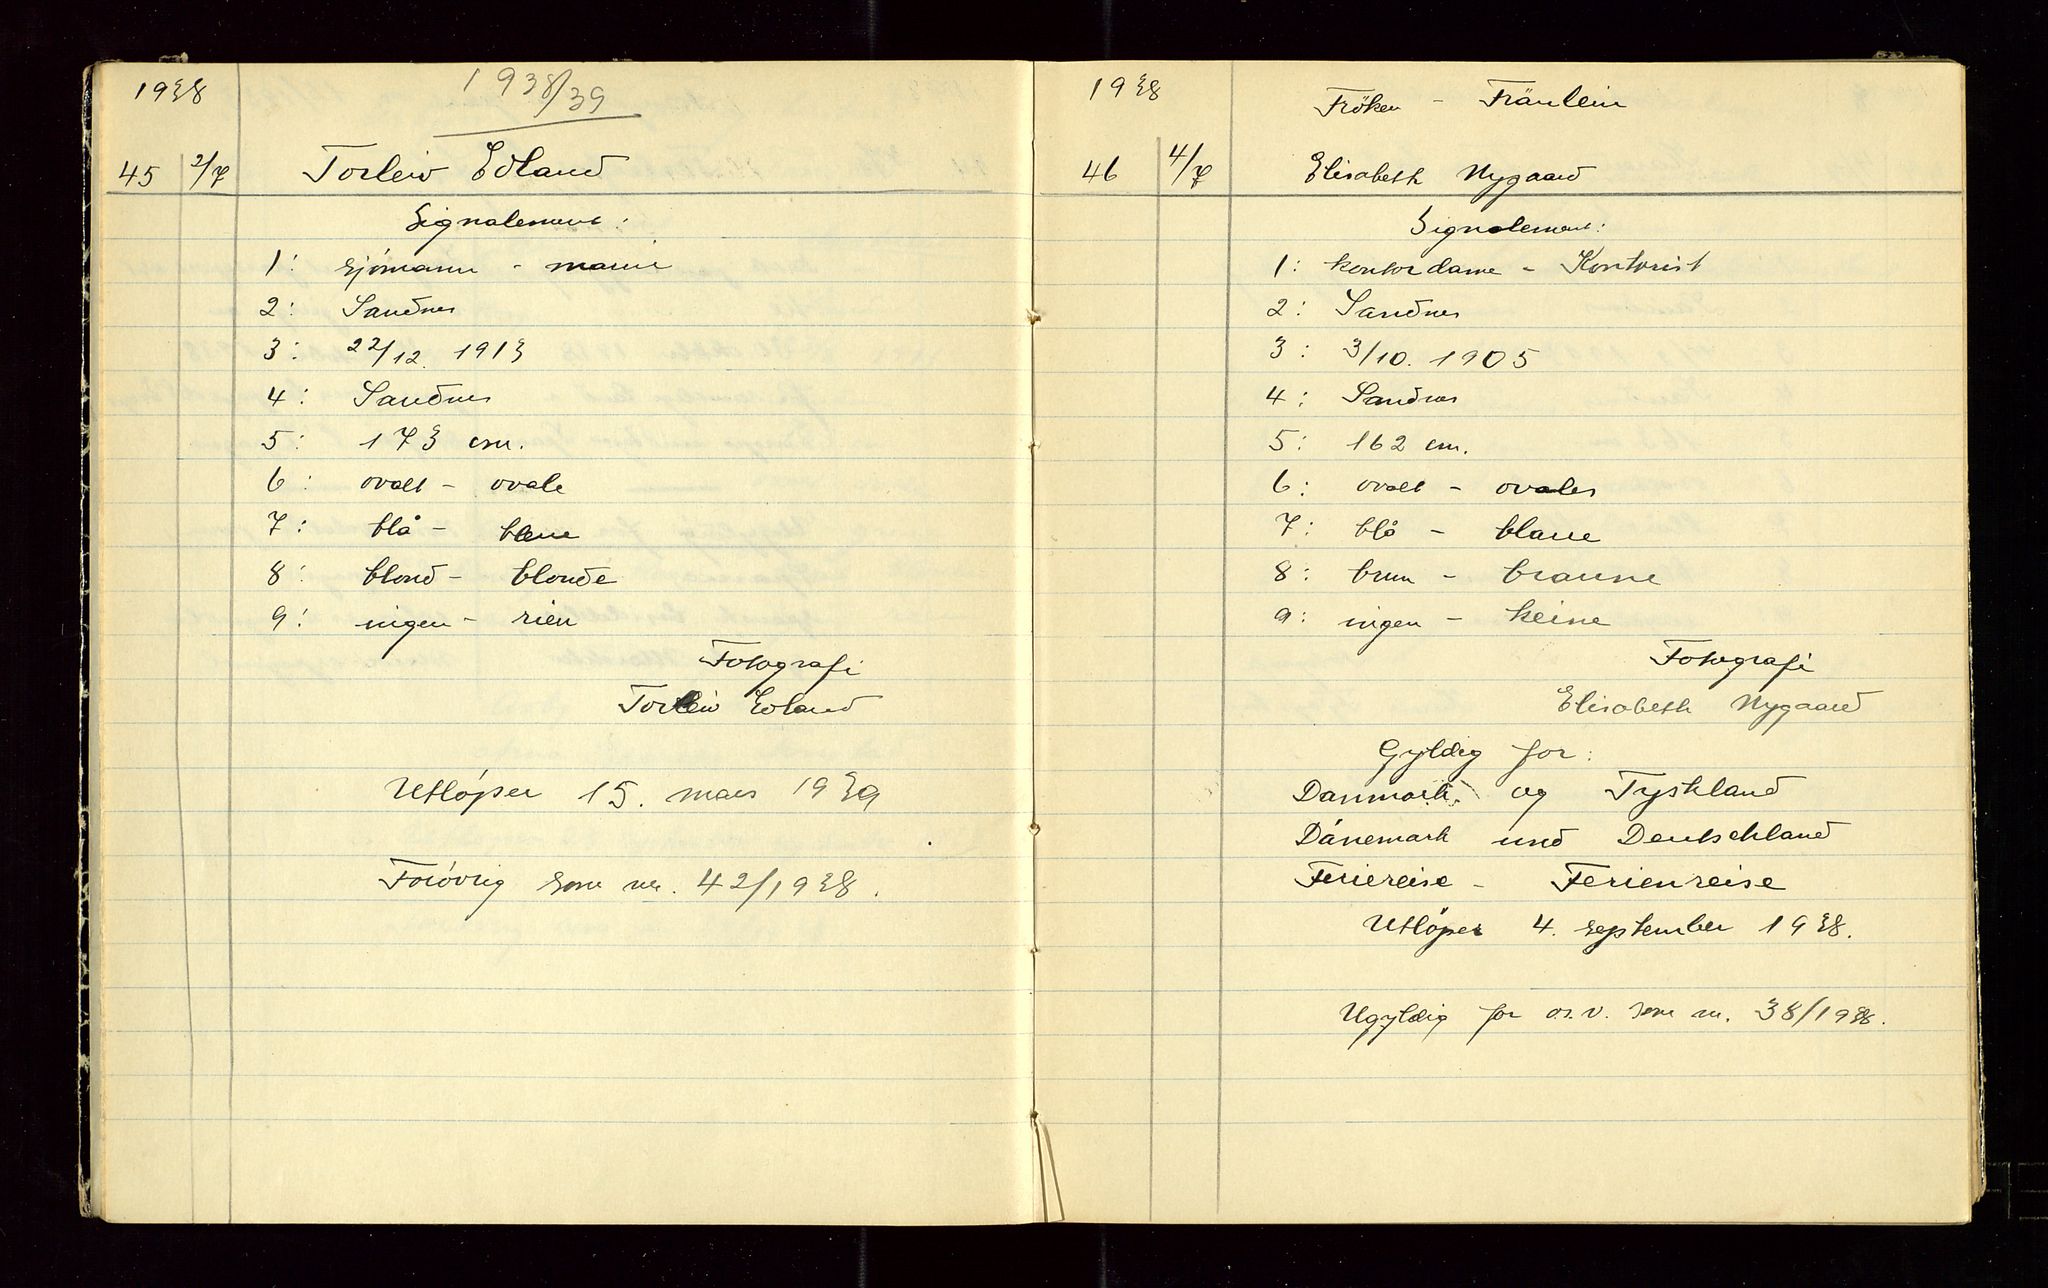 1938
1938/39
45 2/7 Torleiv Edland
Signalement:
1: sjömann - marin
2: Sandnes
3: 22/12. 1913
4: Sandnes
5: 173 cm.
6: ovalt - ovale
7: blå - bleue
8: blond - blonde
9: ingen - rien
Fotografi
Torleiv Edland
Utlöper 15. mars 1939
Forövrig som nr. 42/1938.
1938
Fröken - Fräulein
46 4/7 Elisabeth Nygaard
Signalement:
1: kontordame - Kontorist
2: Sandnes
3: 3/10. 1905
4: Sandnes
5: 162 cm.
6: ovalt - ovales
7: blå - blaue
8: brun - braune
9: ingen - keine
Fotografi
Elisabeth Nygaard
Gyldig for:
Danmark og Tyskland
Dänemark und Deutschland
Feriereise - Ferienreise
Utlöper 4. september 1938.
Ugyldig for o.s.v. som nr. 38/1938.